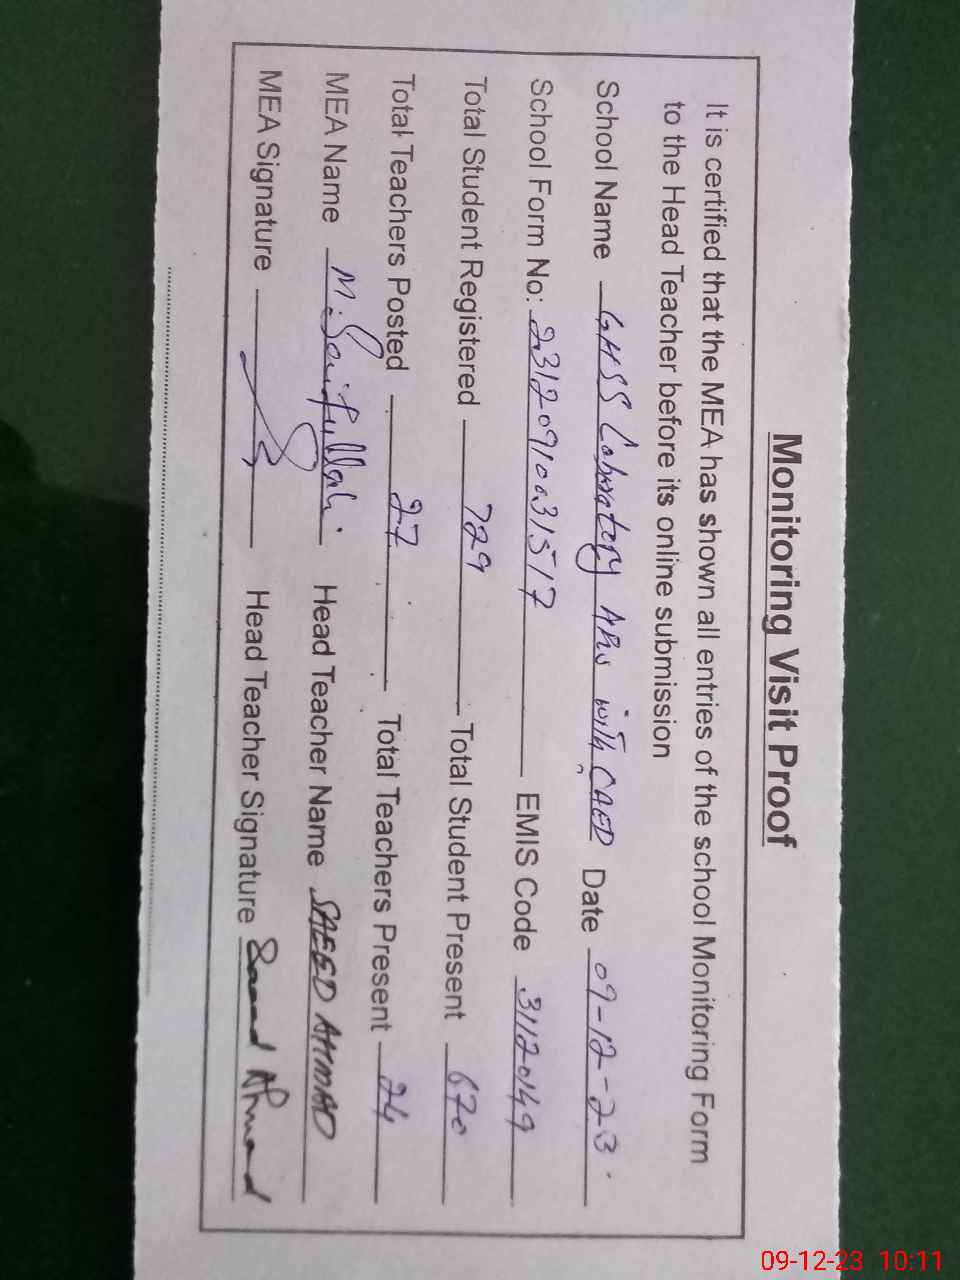 Monitoring Visit Proof
It is certified that the MEA has shown all entries of the school Monitoring Form
to the Head Teacher before its online submission
School Name GHSS Laboratory with CAED Date 09-12-23
School Form No: 23120910031517 EMIS Code 31120149
Total Student Registered 729 Total Student Present 670
Total Teachers Posted 27 Total Teachers Present 24
MEA Name M. Head Teacher Name SAEED AHMAD
MEA Signature Head Teacher Signature Saeed Ahmad
09-12-23 10:11